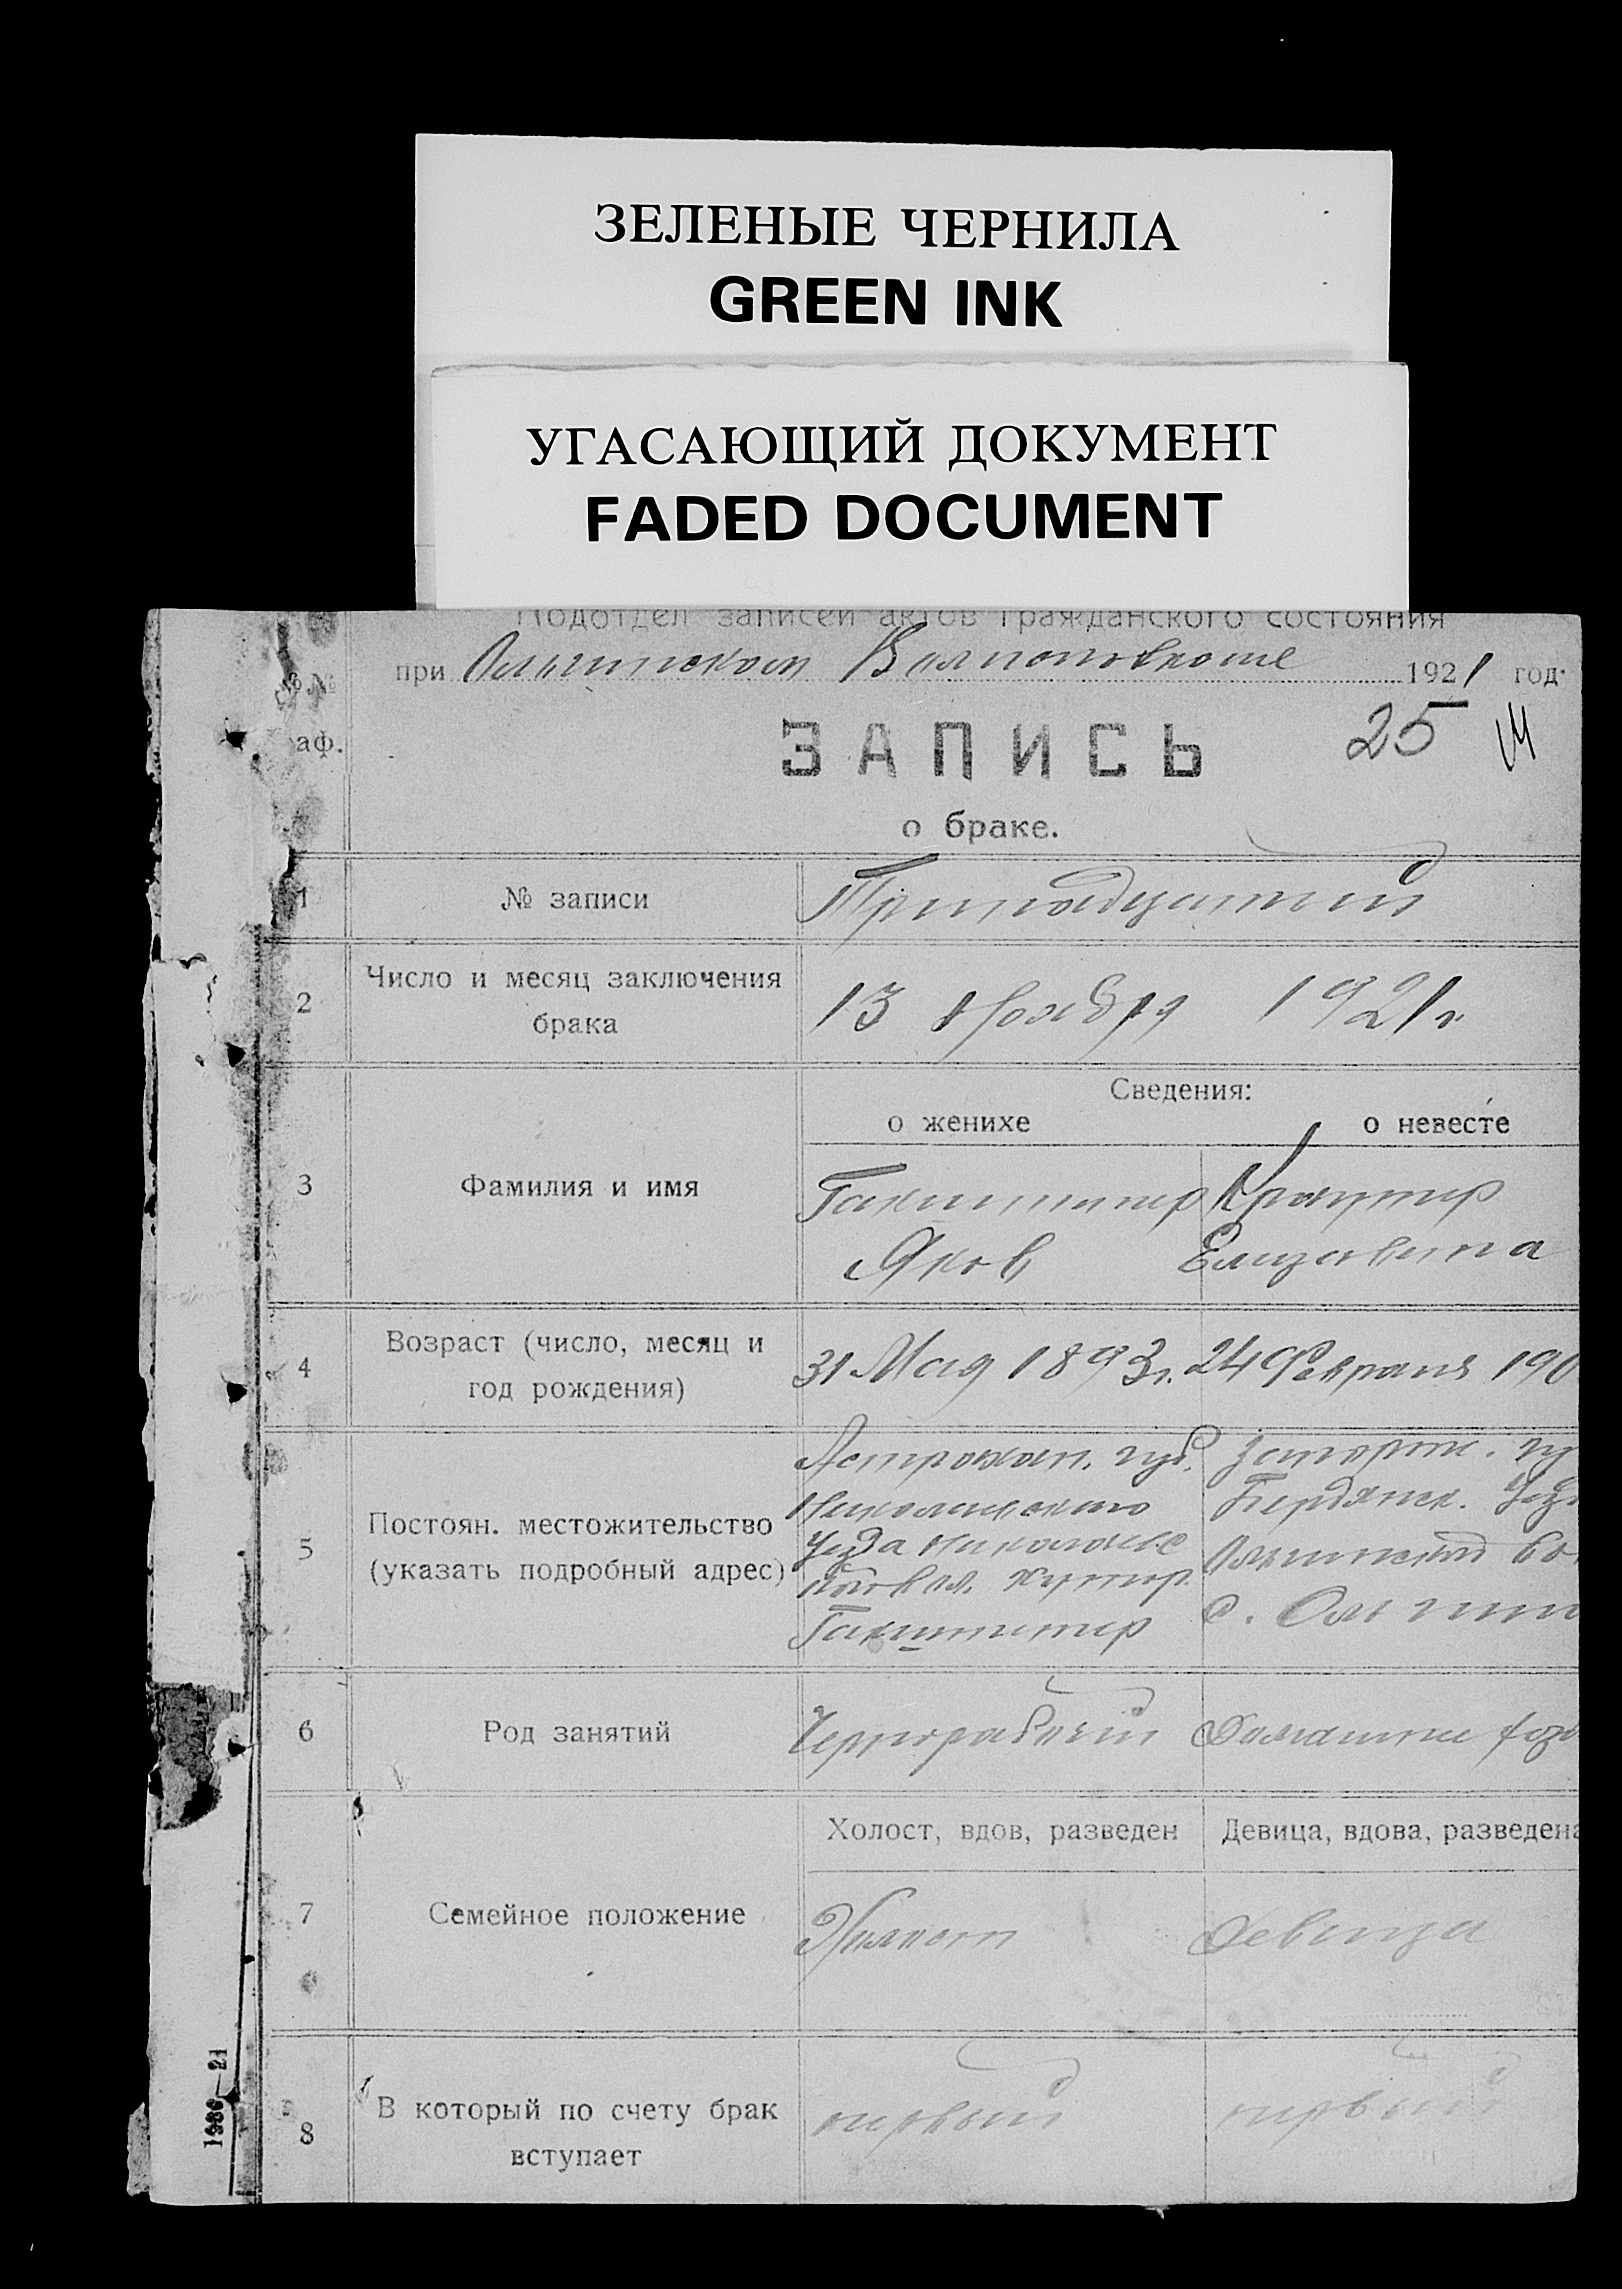 ЗЕЛЕНЫЕ ЧЕРНИЛА
GREEN INK
УГАСАЮЩИЙ ДОКУМЕНТ
FADED DOCUMENT
Подотдел записей актов гражданского состояния
№№ при Ольгинском Волисполкоме 1921 год
аф.
ЗАПИСЬ 25
о браке.
1 № записи Тринадцатый
2 Число и месяц заключения брака 13 Ноября 1921 г.
Сведения:
о женихе о невесте
3 Фамилия и имя
Яков Елизавета
4 Возраст (число, месяц и год рождения) 31 Мая 1893 г. 24 Февраля 190
5 Постоян. местожительство (указать подробный адрес)
Астрахан. губ.
Николаевского
Уезда
хутор
Бердянск. Уез
Ольгинской во
с. Ольгино
6 Род занятий Чернорабочий Домашне хоз
Холост, вдов, разведен Девица, вдова, разведена
7 Семейное положение Холост Девица
8 В который по счету брак вступает первый первый
1986—21